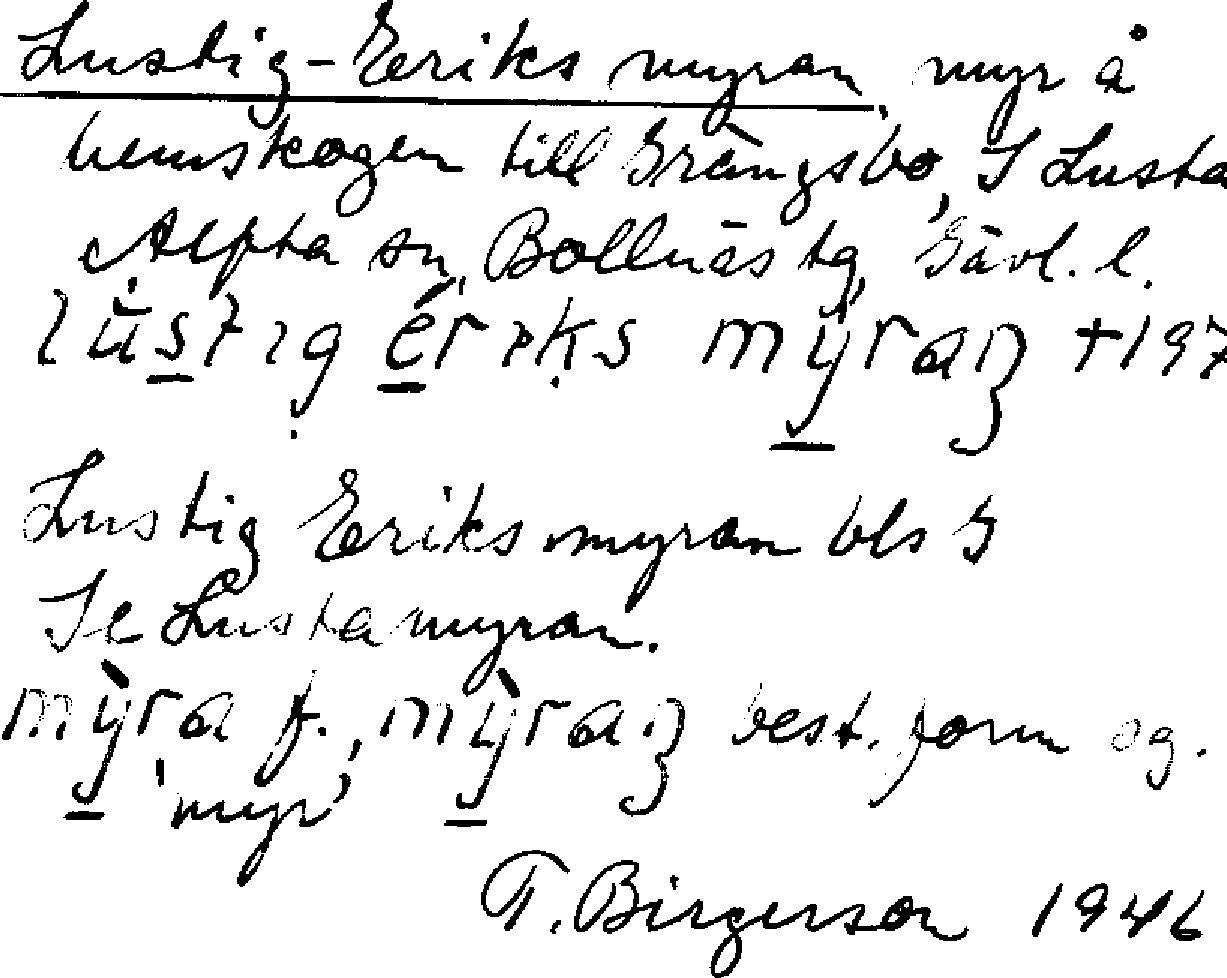 Lustig-Eriks myran, myr å
hemskogen till Grängsbo, S Lusta
Alfta sn, Bollnäs tg, Gävl. l.
lùstig ériks mýran +197
Lustig Eriks myran bls G
Se Lustamyran.
mỳra f., mỳran best. form sg.
'myr'
T. Birgerson 1946